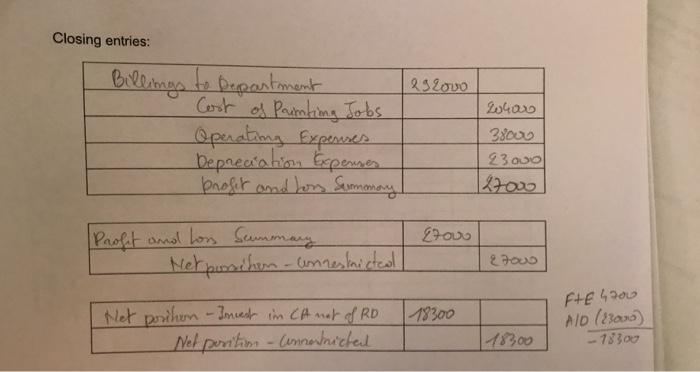 Closing entries:
Billings to Department 292000
Cost of Printing Jobs 204000
Operating Expenses 38000
Depreciation Expenses 23000
profit and loss Summary 27000
Profit and loss Summary 27000
Net position - unrestricted 27000
Net position - Invest in CA net of RD 18300
Net position - unrestricted 18300
F+E 4700
A/D (23000)
-18300